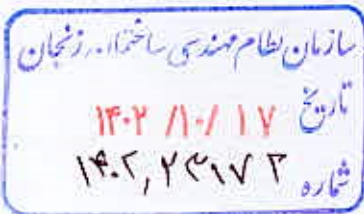 سازمان نظام مهندسی ساختمان زنجان
تاریخ ۱۴۰۲/۱۰/۱۷
شماره